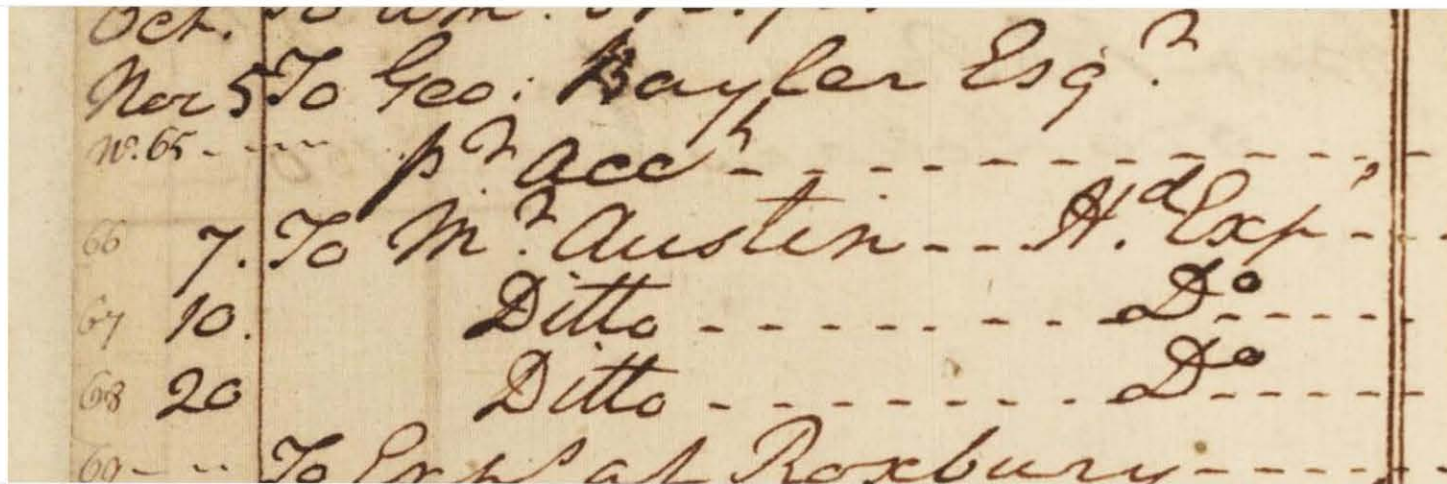 Oct. To
Nov 5 To Geo: Baylor Esqr
No. 65 - - - - pr. acct - - - - - - - - - - - -
66 7. To Mr. Austin - - H.d Exp - -
67 10. Ditto - - - - - - - - Do - - - - -
68 20 Ditto - - - - - - - - Do - - - - -
69 - - - To Exps at Roxbury - - - - -